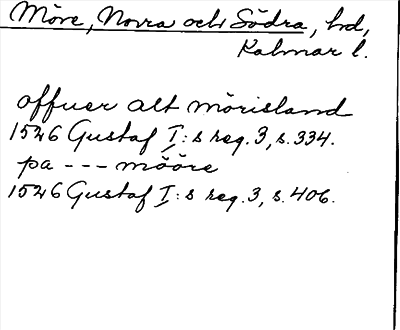 Möre, Norra och Södra, hd,
Kalmar l.
offuer alt mörisland
1526 Gustaf I:s reg. 3, s. 334.
pa --- mööre
1526 Gustaf I:s reg. 3, s. 406.